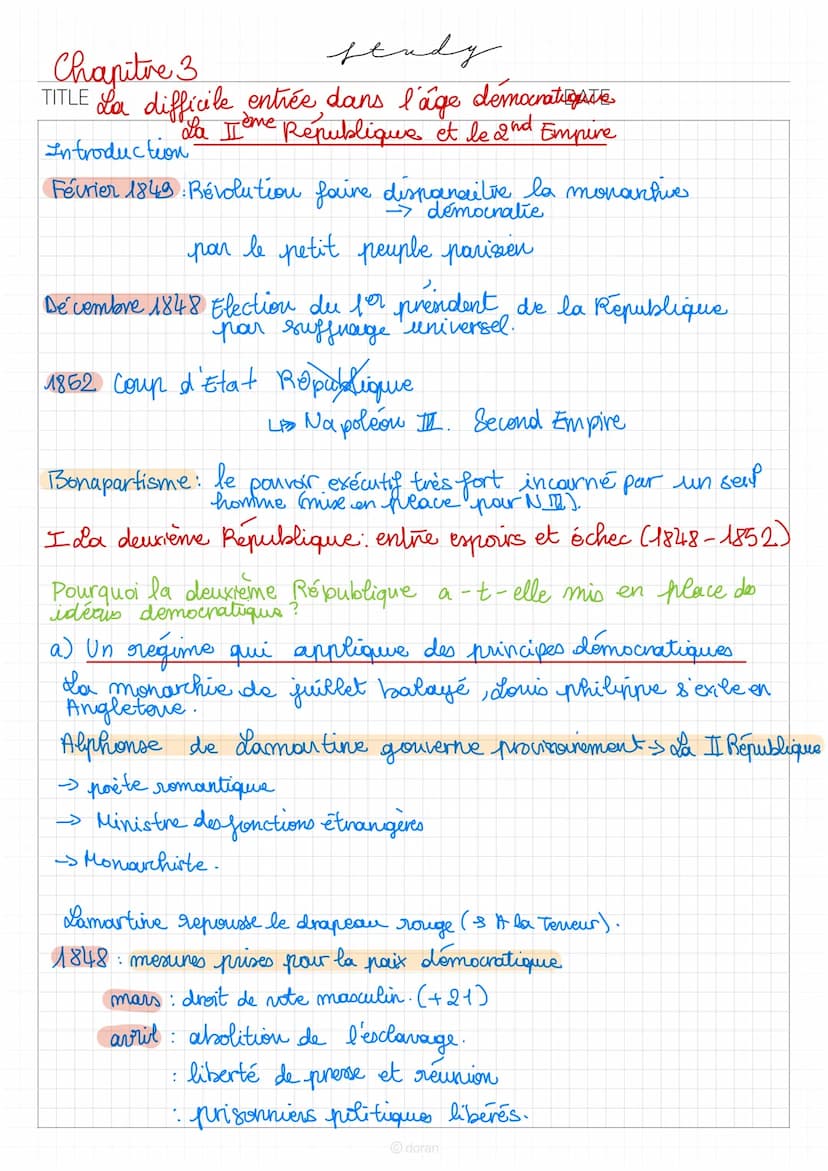 study
Chapitre 3
TITLE La difficile entrée dans l'âge démocratique DATE
La IIème République et le 2nd Empire
Introduction
Février 1849 : Révolution faire disparaitre la monarchie
-> démocratie
par le petit peuple parisien
Décembre 1848 Election du 1er président de la République
par suffrage universel.
1852 Coup d'Etat République
↳ Napoléon III. Second Empire
Bonapartisme : le pouvoir exécutif très fort incarné par un seul
homme (mise en place par N III).
I La deuxième République : entre espoirs et échec (1848-1852)
Pourquoi la deuxième République a-t-elle mis en place des
idéaux démocratique ?
a) Un régime qui applique des principes démocratiques
La monarchie de juillet balayé, Louis philippe s'exile en
Angleterre.
Alphonse de Lamartine gouverne provisoirement -> La II République
-> poète romantique
-> Ministre des fonctions étrangères
-> Monarchiste.
Lamartine repousse le drapeau rouge ( A la Terreur).
1848 : mesures prises pour la paix démocratique
mars : droit de vote masculin. (+21)
avril : abolition de l'esclavage.
: liberté de presse et réunion
: prisonniers politiques libérés.
© doran